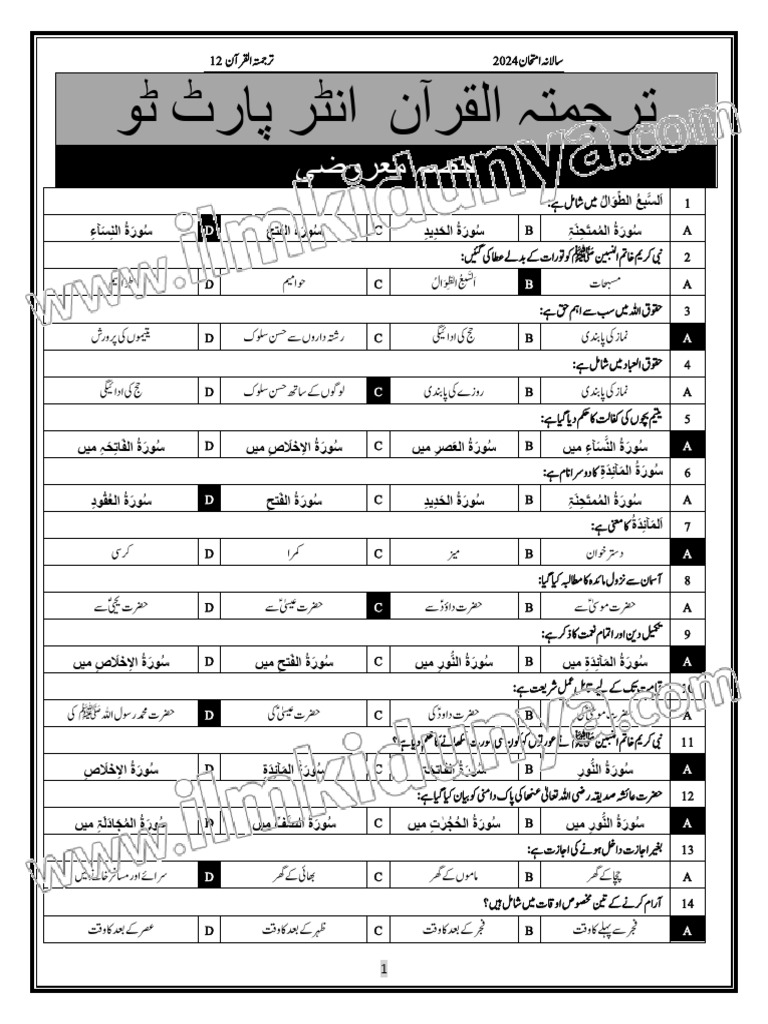 سالانہ امتحان 2024 ترجمتہ القرآن 12
ترجمتہ القرآن انٹر پارٹ ٹو
حصہ معروضی
1 اَلسَّبعُ الطِّوَالُ میں شامل ہے:
A سُورَۃُ المُمتَحِنَۃِ B سُورَۃُ الحَدِیدِ C سُورَۃُ الفَتحِ D سُورَۃُ النِسَآءِ
2 نبی کریم خاتم النبیین ﷺ کو تورات کے بدلے عطا کی گئیں:
A مسبحات B السَّبعُ الطِّوَالُ C حوامیم D
3 حقوق اللہ میں سب سے اہم حق ہے:
A نماز کی پابندی B حج کی ادائیگی C رشتہ داروں سے حسن سلوک D یتیموں کی پرورش
4 حقوق العباد میں شامل ہے:
A نماز کی پابندی B روزے کی پابندی C لوگوں کے ساتھ حسن سلوک D حج کی ادائیگی
5 یتیم بچوں کی کفالت کا حکم دیا گیا ہے:
A سُورَۃُ النِّسَآءِ میں B سُورَۃُ العَصرِ میں C سُورَۃُ الاِخلَاصِ میں D سُورَۃُ الفَاتِحَۃِ میں
6 سُورَۃُ المَآئِدَۃِ کا دوسرا نام ہے:
A سُورَۃُ المُمتَحِنَۃِ B سُورَۃُ الحَدِیدِ C سُورَۃُ الفَتحِ D سُورَۃُ العُقُودِ
7 اَلمَآئِدَۃُ کا معنی ہے:
A دسترخوان B میز C کمرا D کرسی
8 آسمان سے نزول مائدہ کا مطالبہ کیا گیا:
A حضرت موسیٰؑ سے B حضرت داؤدؑ سے C حضرت عیسیٰؑ سے D حضرت یحییٰؑ سے
9 تکمیل دین اور اتمام نعمت کا ذکر ہے:
A سُورَۃُ المَآئِدَۃِ میں B سُورَۃُ النُّورِ میں C سُورَۃُ الفَتحِ میں D سُورَۃُ الاِخلَاصِ میں
قیامت تک کے لیے قابل عمل شریعت ہے:
A حضرت موسیٰؑ کی B حضرت داودؑ کی C حضرت عیسیٰؑ کی D حضرت محمد رسول اللہ ﷺ کی
11 نبی کریم خاتم النبیین ﷺ نے عورتوں کو کون سی سورت سکھانے کا حکم دیا ہے؟
A سُورَۃُ النُّورِ B سُورَۃُ الفَاتِحَۃِ C سُورَۃُ المَآئِدَۃِ D سُورَۃُ الاِخلَاصِ
12 حضرت عائشہ صدیقہ رضی اللہ تعالیٰ عنھا کی پاک دامنی کو بیان کیا گیا ہے:
A سُورَۃُ النُّورِ میں B سُورَۃُ الحُجُرٰتِ میں C سُورَۃُ الصَّفِّ میں D سُورَۃُ المُجَادَلَۃِ میں
13 بغیر اجازت داخل ہونے کی اجازت ہے:
A چچا کے گھر B ماموں کے گھر C بھائی کے گھر D سرائے اور مسافر خانے میں
14 آرام کرنے کے تین مخصوص اوقات میں شامل ہیں؟
A فجر سے پہلے کا وقت B فجر کے بعد کا وقت C ظہر کے بعد کا وقت D عصر کے بعد کا وقت
1
www.ilmkidunya.com
www.ilmkidunya.com